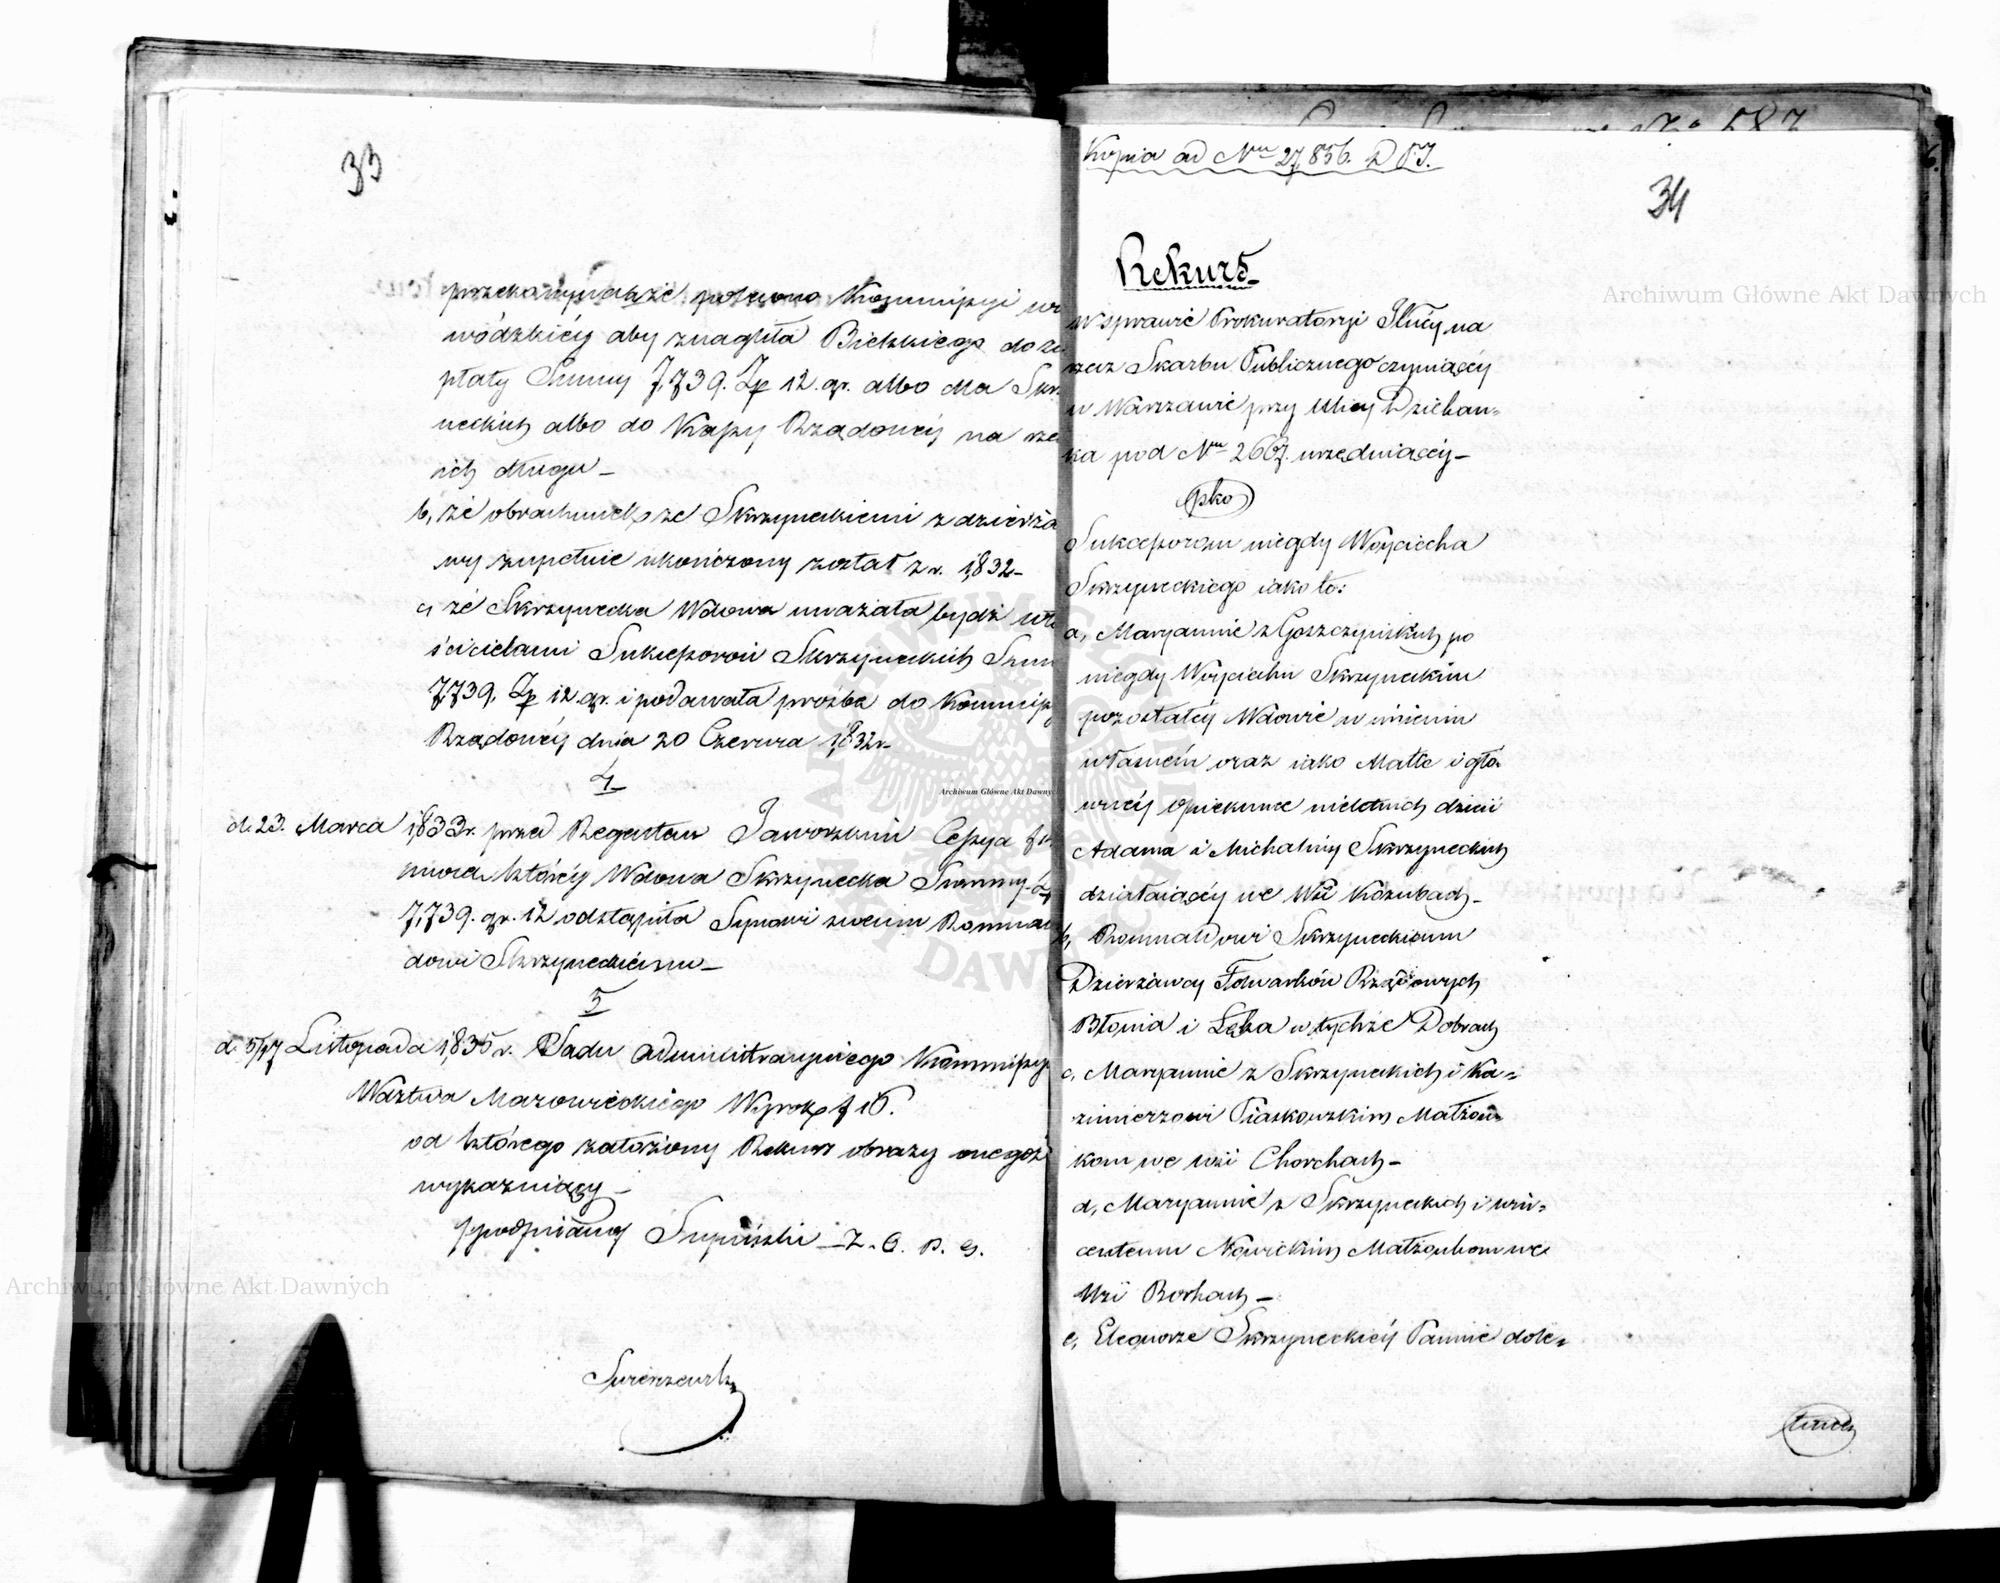 33
przekonywa że polecono Kommissyi wo
wódzkiéy aby znagliła Bielskiego do za
płaty Summy 7,739. Zp 12. gr. albo dla Skrzy
neckich albo do Kassy Rządowéy na rze
ich długu –
b, że obrachunek ze Skrzyneckiemi z dzierża
wy zupełnie ukończony został z r. 1832 –
c, że Skrzynecka Wdowa uważała bydź wła
ścicielami Sukcessorów Skrzyneckich Sum
7,739. Zp 12. gr. i podawała prośbę do Kommissy
Rządowéy dnia 20 Czerwca 1832 r.
4
d. 23. Marca 1833 r. przed Regentem Jaworskim Cessya
mocą któréy Wdowa Skrzynecka Summę Zp
7,739. gr. 12 odstąpiła Synowi swemu Romual
dowi Skrzyneckiemu –
5
d. 5/17 Listopada 1835 r. Sądu Administracyinego Kommissyi
Wdztwa Mazowieckiego Wyrok f 16.
od którego założony Rekurs obrazy onegoż
wykazuiący –
/podpisany/ Supiński – Z. O. P. G.
Archiwum Główne Akt Dawnych
Kopia ad Nrum 27,856. D P. J.
34
Rekurs
W sprawie Prokuratoryi Jlnéy na
rzecz Skarbu Publicznego czyniącéy
w Warszawie przy Ulicy Dziekan=
ka pod Nrem 2667. urzęduiącéy –
pko
Sukcessorom niegdy Woyciecha
Skrzyneckiego iako to:
a, Maryannie z Goszczyńskich po
niegdy Woyciechu Skrzyneckim
pozostałéy Wdowie w imieniu
własném oraz iako Matce i głó
wnéy Opiekunce nieletnich dzieci
Adama i Michaliny Skrzyneckich
działaiącéy we Wsi Kozubach –
b, Romualdowi Skrzyneckiemu
Dzierżawcy Folwarków Rządowych
Błonia i Łęka w tychże Dobrach
c, Maryannie z Skrzyneckich i Ka=
zimierzowi Piaskowskim Małżon=
kom we wsi Chorchach –
d, Maryannie z Skrzyneckich i Win=
centemu Nowickim Małżonkom we
Wsi Borkach –
e, Eleonorze Skrzyneckiéy Pannie dole=
Archiwum Główne Akt Dawnych
Archiwum Główne Akt Dawnych